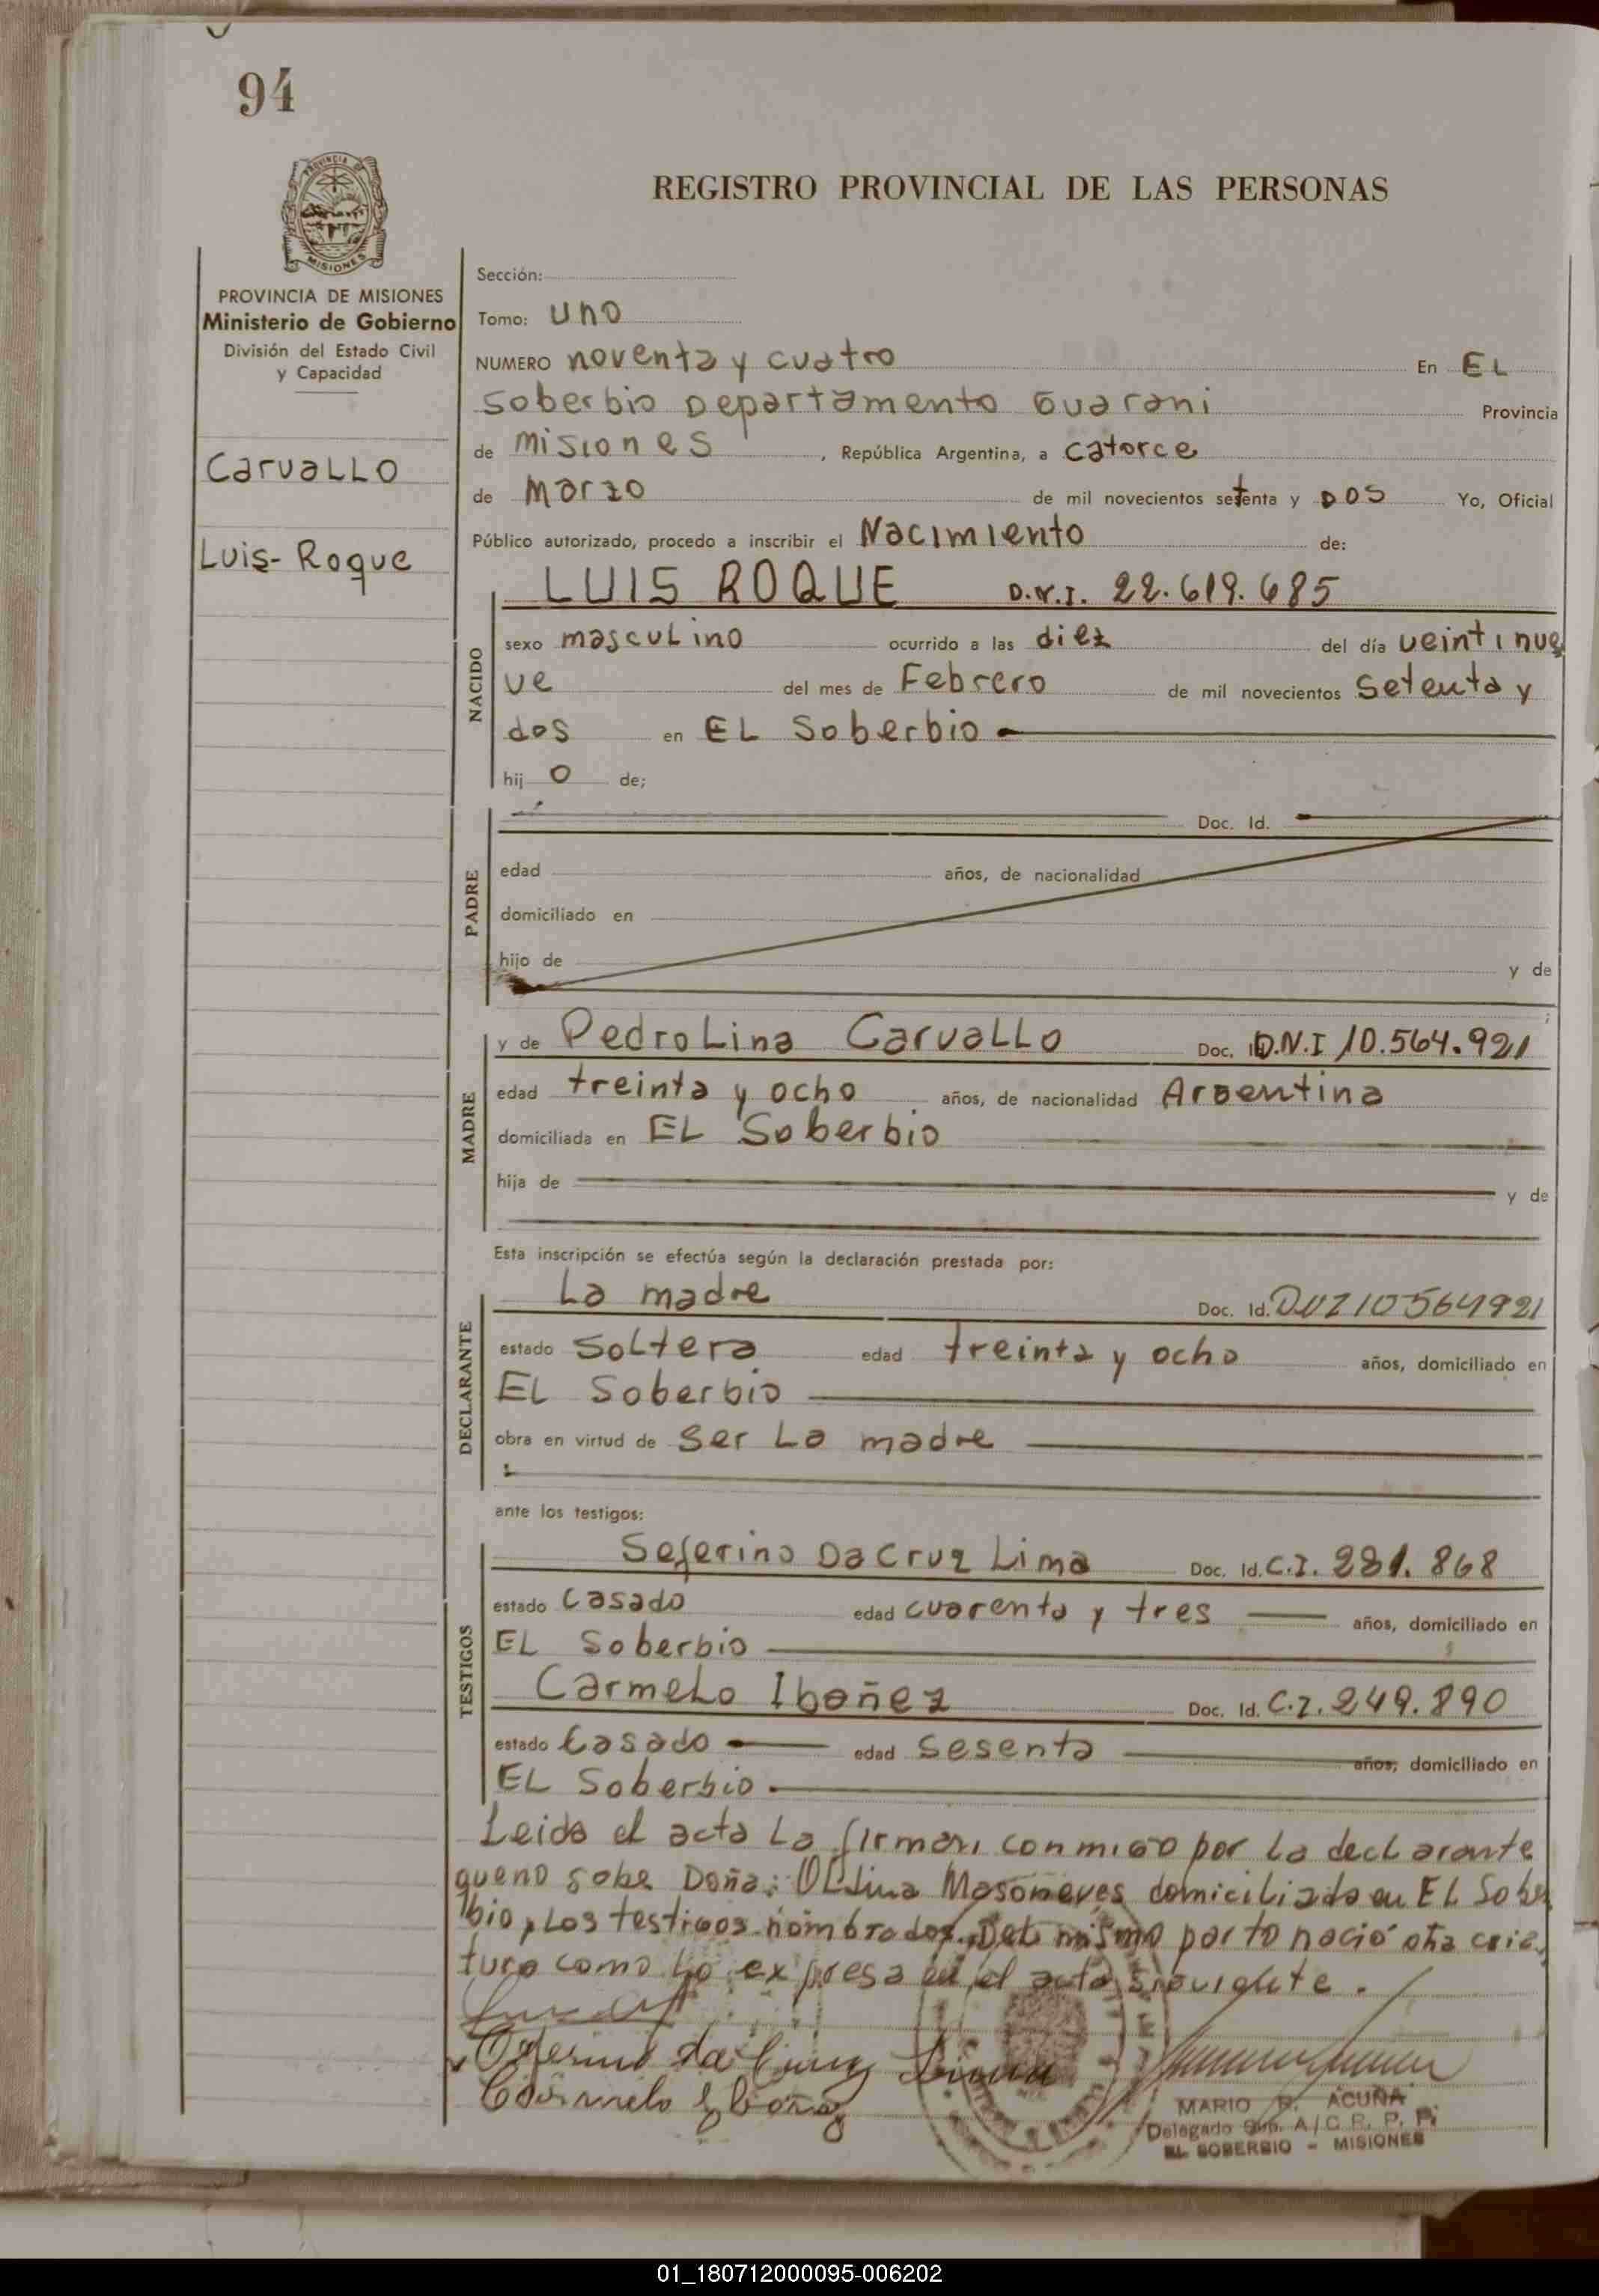 94
PROVINCIA DE MISIONES
REGISTRO PROVINCIAL DE LAS PERSONAS
PROVINCIA DE MISIONES
Ministerio de Gobierno
División del Estado Civil
y Capacidad
Carvallo
Luis-Roque
Sección:
Tomo: uno
NUMERO noventa y cuatro En EL
Soberbio Departamento Guarani Provincia
de Misiones, República Argentina, a catorce
de Marzo de mil novecientos setenta y DOS Yo, Oficial
Público autorizado, procedo a inscribir el Nacimiento de:
LUIS ROQUE D.N.I. 22.619.685
NACIDO
sexo masculino ocurrido a las diez del día veintinue
ve del mes de Febrero de mil novecientos Setenta y
dos en EL Soberbio
hijo de;
PADRE
Doc. Id.
edad años, de nacionalidad
domiciliado en
hijo de y de
MADRE
y de Pedrolina Carvallo Doc. Id. D.N.I 10.564.921
edad treinta y ocho años, de nacionalidad Argentina
domiciliada en EL Soberbio
hija de y de
Esta inscripción se efectúa según la declaración prestada por:
DECLARANTE
La madre Doc. Id. DNI 10564921
estado Soltera edad treinta y ocho años, domiciliado en
EL Soberbio
obra en virtud de Ser La madre
ante los testigos:
TESTIGOS
Seferino Da Cruz Lima Doc. Id. C.I. 281.868
estado Casado edad cuarenta y tres años, domiciliado en
EL Soberbio
Carmelo Ibañez Doc. Id. C.I. 249.890
estado Casado edad Sesenta años, domiciliado en
EL Soberbio
Leida el acta La firman conmigo por La declarante
que no sabe Doña: domiciliada en EL Sober
bio, Los testigos nombrados. Del mismo parto nació otra cria
tura como lo expresa en el acta siguiente.
Seferino da Cruz Lima
Carmelo Ibañez
MARIO R. ACUÑA
Delegado Sup. A/C R. P. P.
EL SOBERBIO - MISIONES
01_180712000095-006202